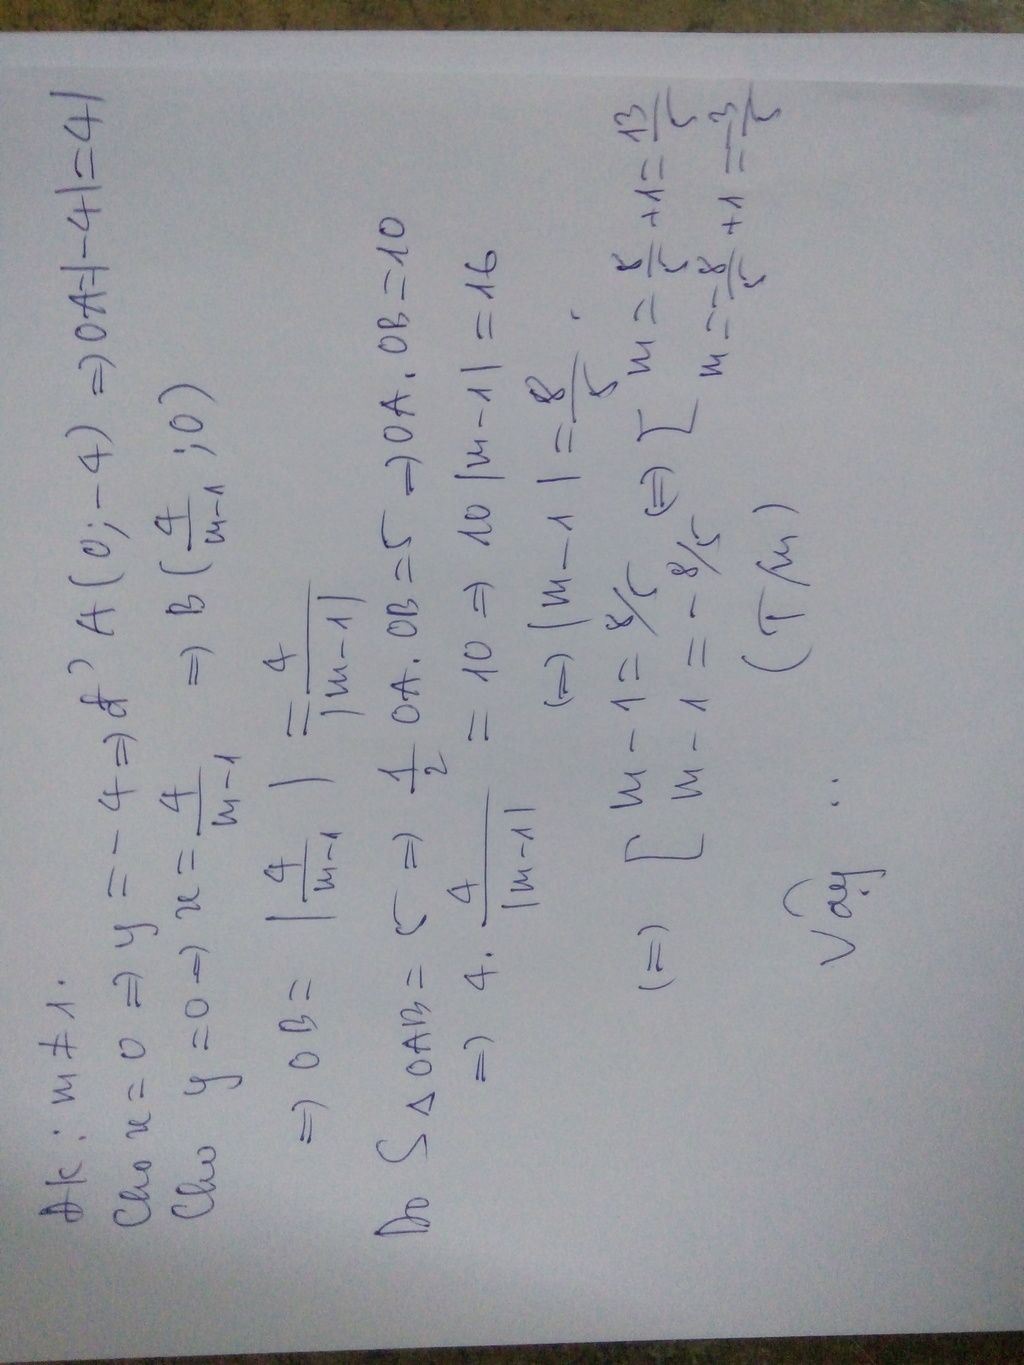 ĐK: m ≠ 1.
Cho x = 0 => y = -4 => A(0; -4) => OA = |-4| = 4
Cho y = 0 => x = 4/(m-1) => B(4/(m-1); 0)
=> OB = |4/(m-1)| = 4/|m-1|
Do S△OAB = 5 => 1/2 OA. OB = 5 => OA. OB = 10
=> 4. 4/|m-1| = 10 => 10|m-1| = 16
(=) |m-1| = 8/5.
(=) [ m-1 = 8/5 (=) [ m = 8/5 + 1 = 13/5
m-1 = -8/5 m = -8/5 + 1 = -3/5
(T/m)
Vậy ..